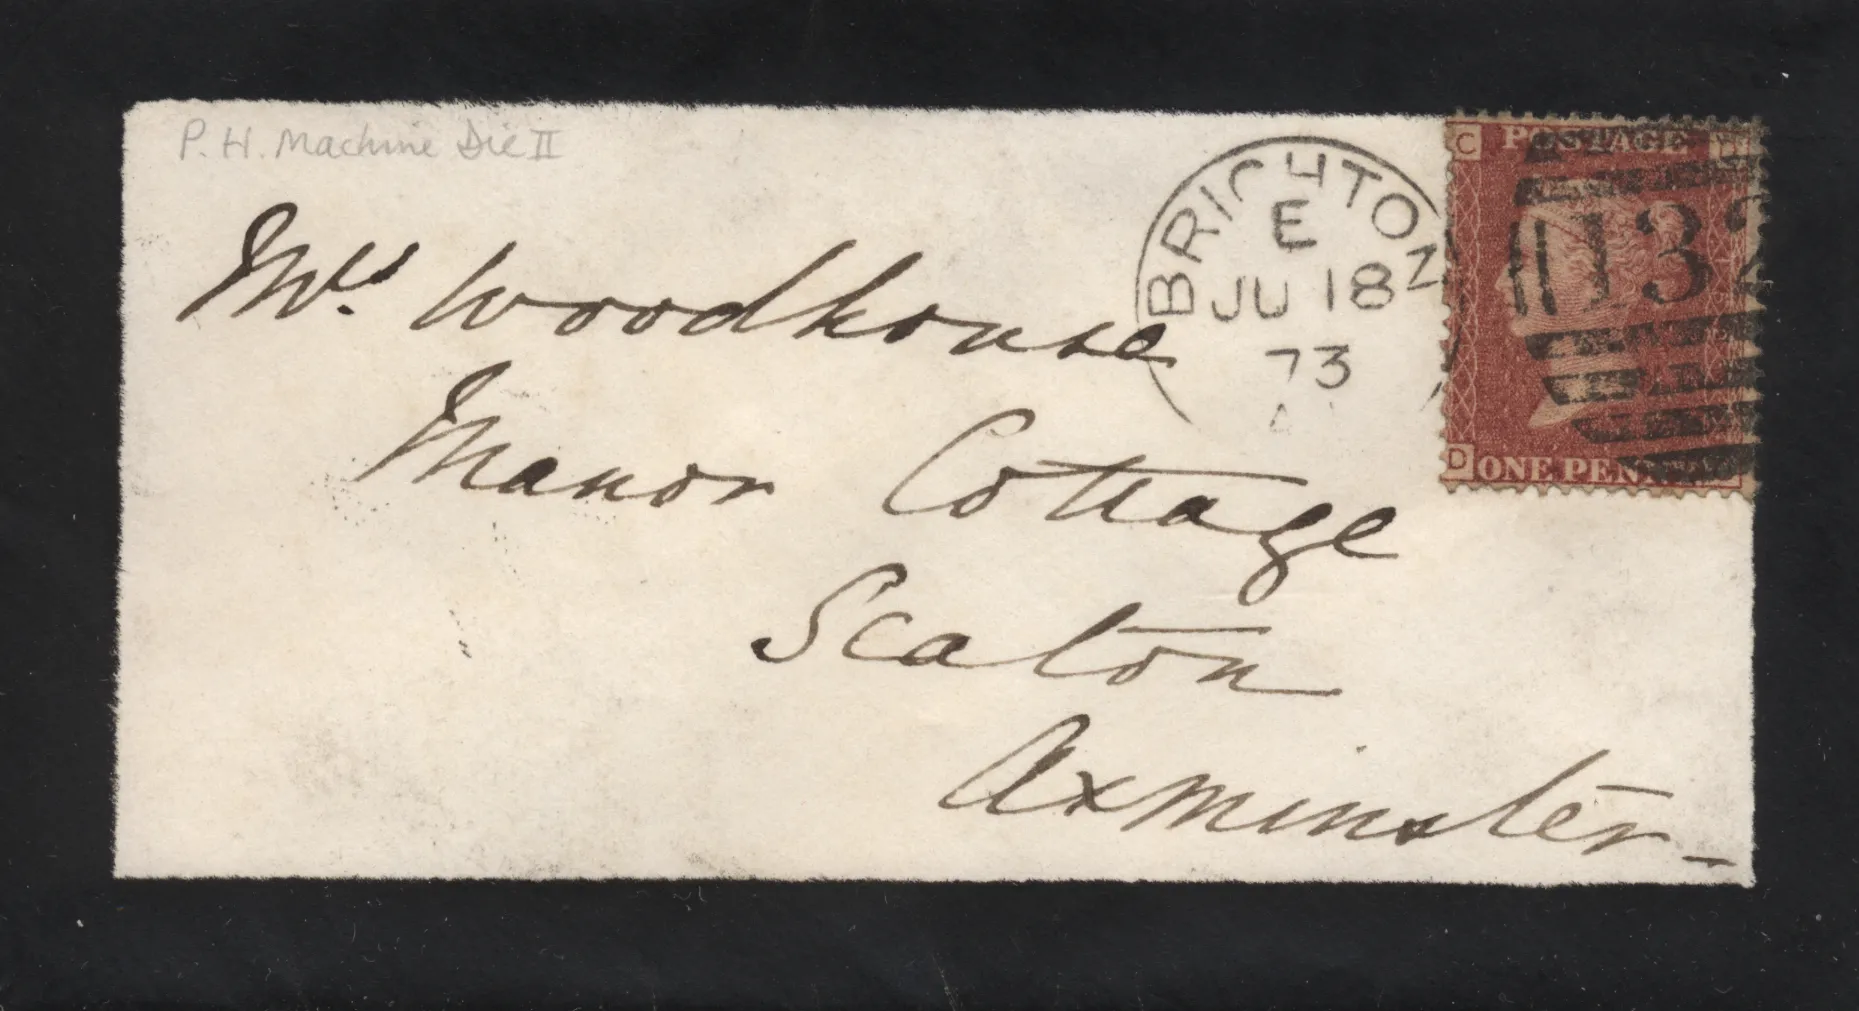 P. H. Machine Die II
Mrs. Woodhouse
Manor Cottage
Seaton
Axminster -
BRIGHTON
E
JU 18
73
C POSTAGE D
132
D ONE PENNY